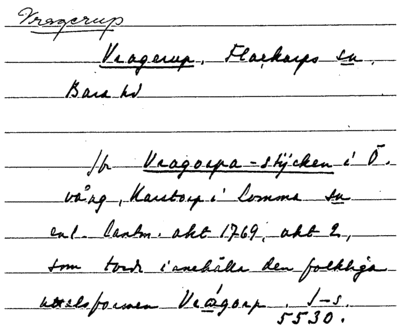 Vragerup
Vragerup, Flackarps sn,
Bara hd
Jfr Vragorpa-stycken i Ö.
vång, Karstorp i Lomma sn
enl. lantm. akt 1769, akt 2,
som torde innehålla den folkliga
uttalsformen Vrågorp. J-s.
5530.